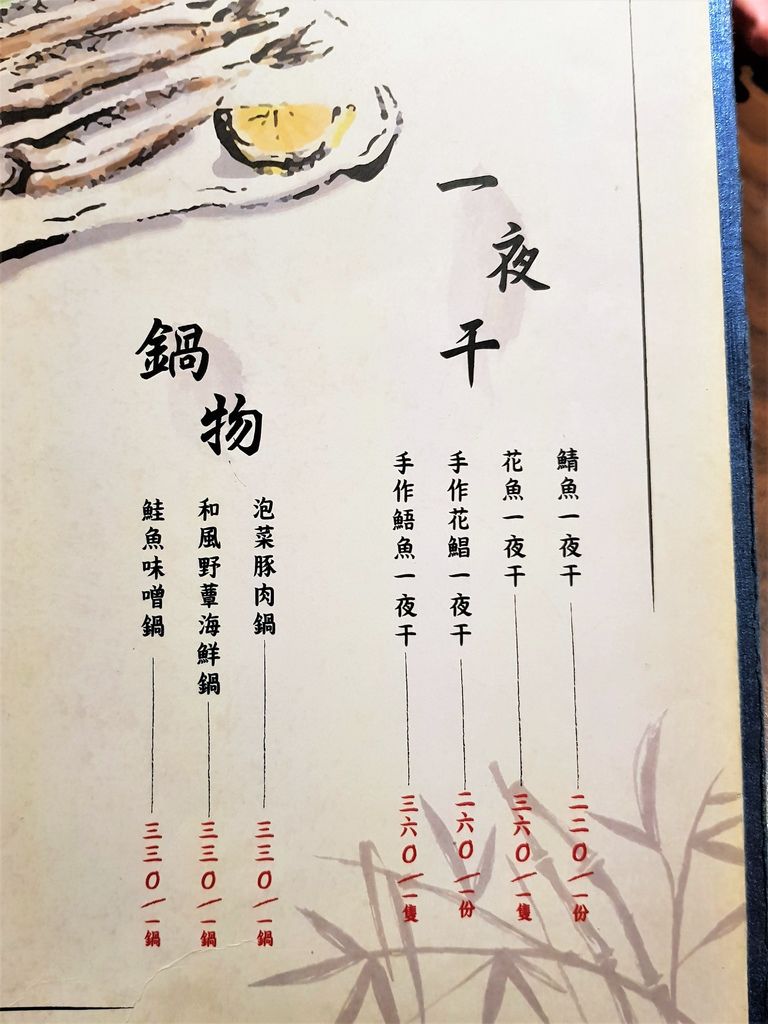 一夜干
鯖魚一夜干 二二0／一份
花魚一夜干 三六0／一隻
手作花鯧一夜干 二六0／一份
手作鯃魚一夜干 三六0／一隻
鍋物
泡菜豚肉鍋 三三0／一鍋
和風野蕈海鮮鍋 三三0／一鍋
鮭魚味噌鍋 三三0／一鍋